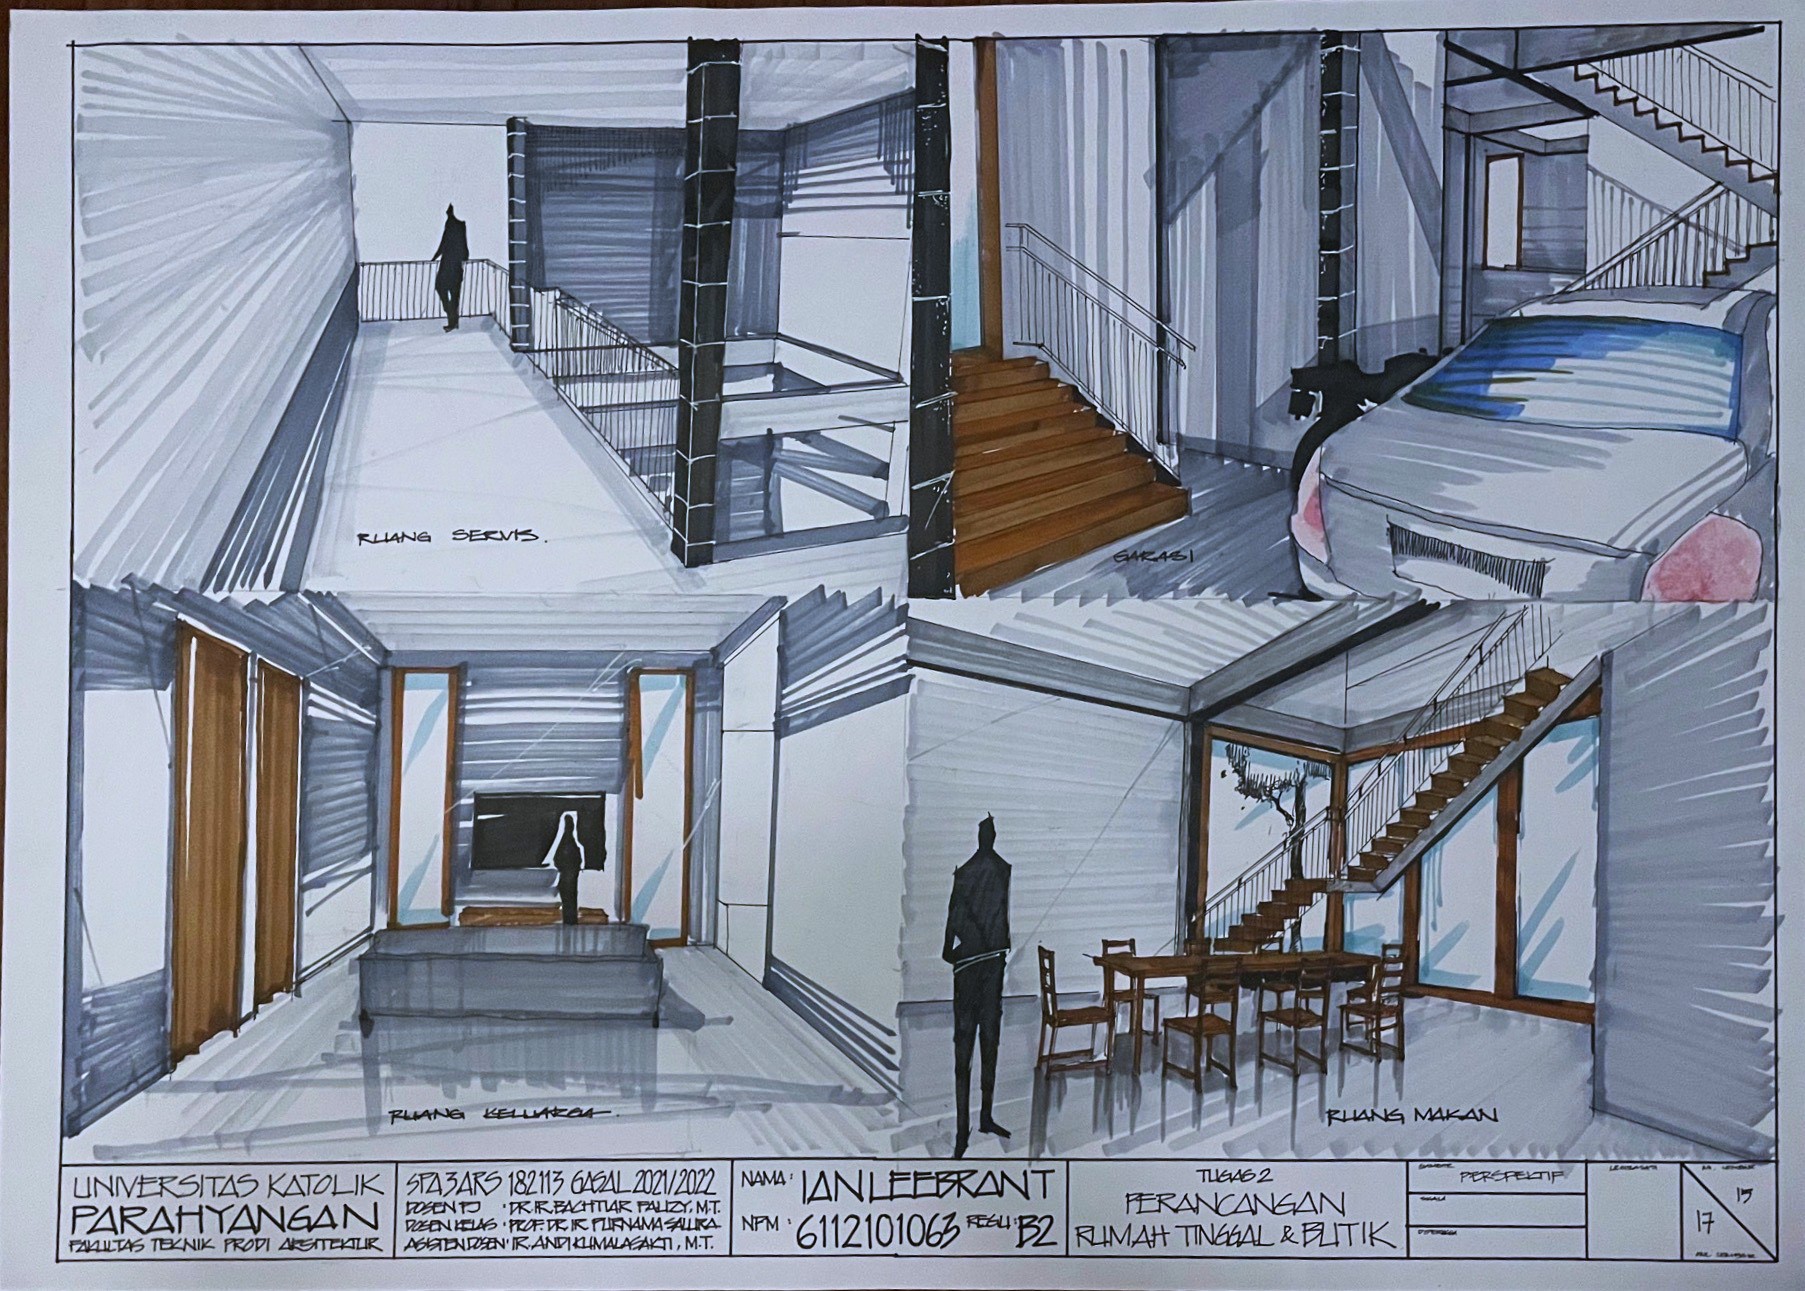 RUANG SERVIS.
GARASI
RUANG KELUARGA.
RUANG MAKAN
UNIVERSITAS KATOLIK
PARAHYANGAN
FAKULTAS TEKNIK PRODI ARSITEKTUR
SPA3ARS 182113 GASAL 2021/2022
DOSEN PJ : DR. IR. BACHTIAR FAUZY, M.T.
DOSEN KELAS : PROF. DR. IR. PURNAMA SALURA
ASISTEN DOSEN : IR. ANDI KUMALASAKTI, M.T.
NAMA : IAN LEEBRANT
NPM : 6112101063 REGU : B2
TUGAS 2
PERANCANGAN
RUMAH TINGGAL & BUTIK
GAMBAR
PERSPEKTIF
SKALA
DIPERIKSA
15
17